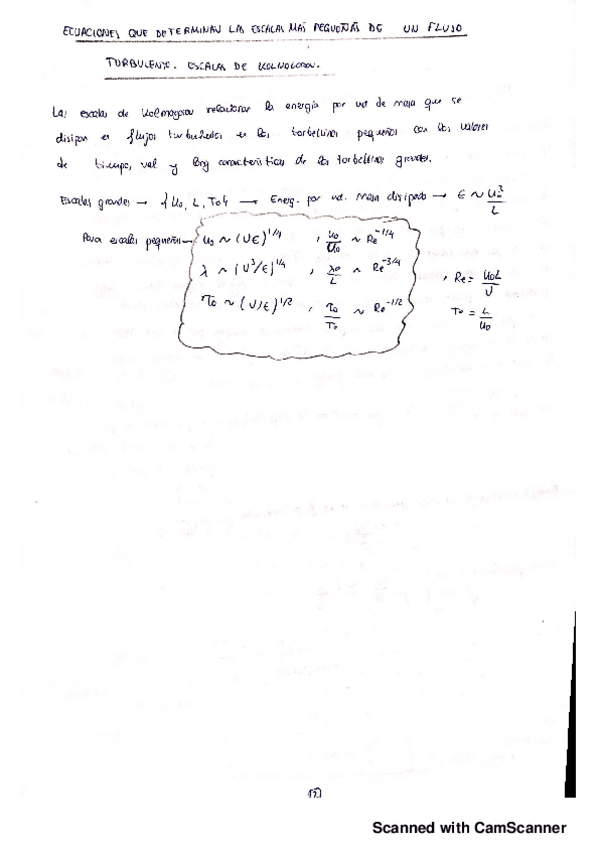 ECUACIONES QUE DETERMINAN LAS ESCALAS MÁS PEQUEÑAS DE UN FLUJO
TURBULENTO. ESCALAS DE KOLMOGOROV.
Las escalas de Kolmogorov relacionan la energía por ud de masa que se
disipan en flujos turbulentos en los torbellinos pequeños con los valores
de tiempo, vel y long características de los torbellinos grandes.
Escalas grandes → {U₀, L, T₀} → Energ. por ud. masa disipada → ε ~ U₀³/L
Para escalas pequeñas → u₀ ~ (νε)^1/4 , u₀/U₀ ~ Re^-1/4
λ ~ (ν³/ε)^1/4 , λ₀/L ~ Re^-3/4 , Re = U₀L/ν
τ₀ ~ (ν/ε)^1/2 , τ₀/T₀ ~ Re^-1/2 T₀ = L/U₀
Scanned with CamScanner